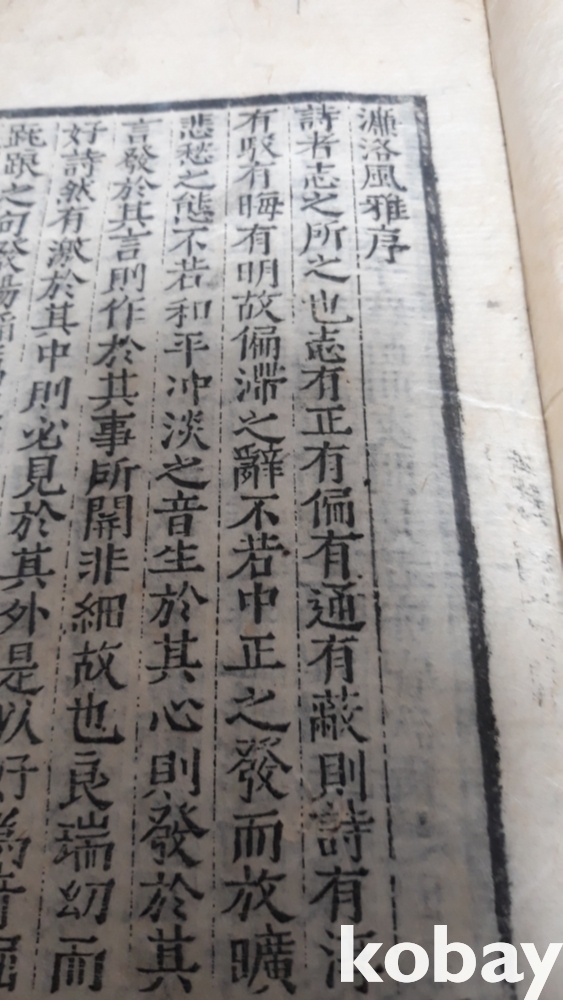 濂洛風雅序
詩者志之所之也志有正有偏有通有蔽則詩有淳
有駁有晦有明故偏滯之辭不若中正之發而放曠
悲愁之態不若和平冲淡之音生於其心則發於其
言發於其言則作於其事所關非細故也良端幼而
好詩然有激於其中則必見於其外是以好爲
踉之句發揚
kobay